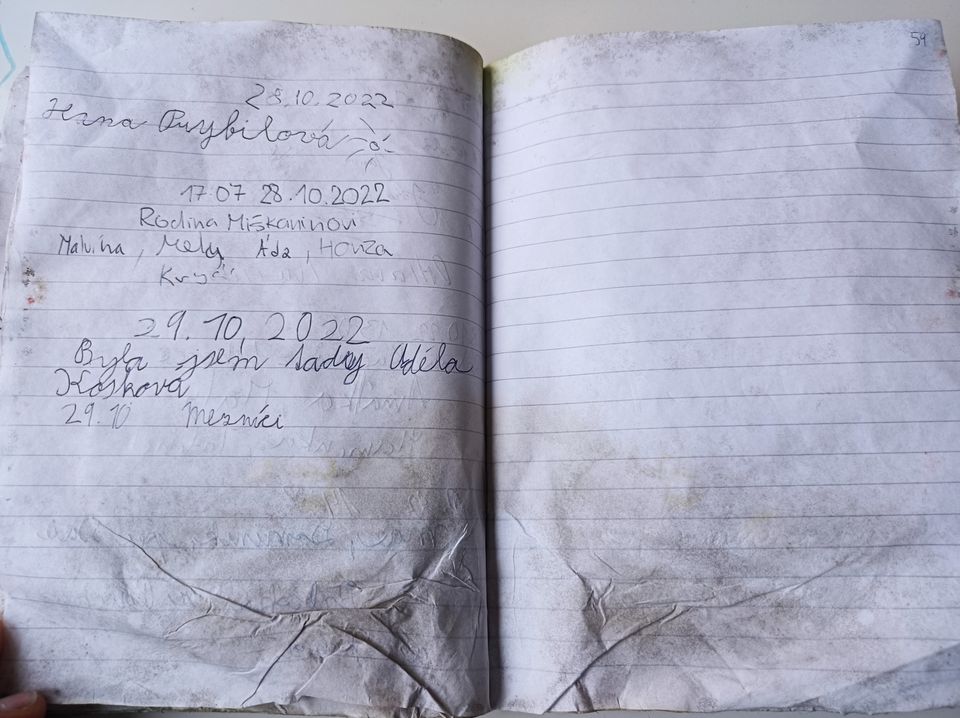 59
28.10.2022
Pruybilová
17:07 28.10.2022
Rodina Miškaninovi
Malvína, Mely Áďa, Honza
29.10.2022
Byla jsem tady Adéla
Kosková
29.10 Mezníci